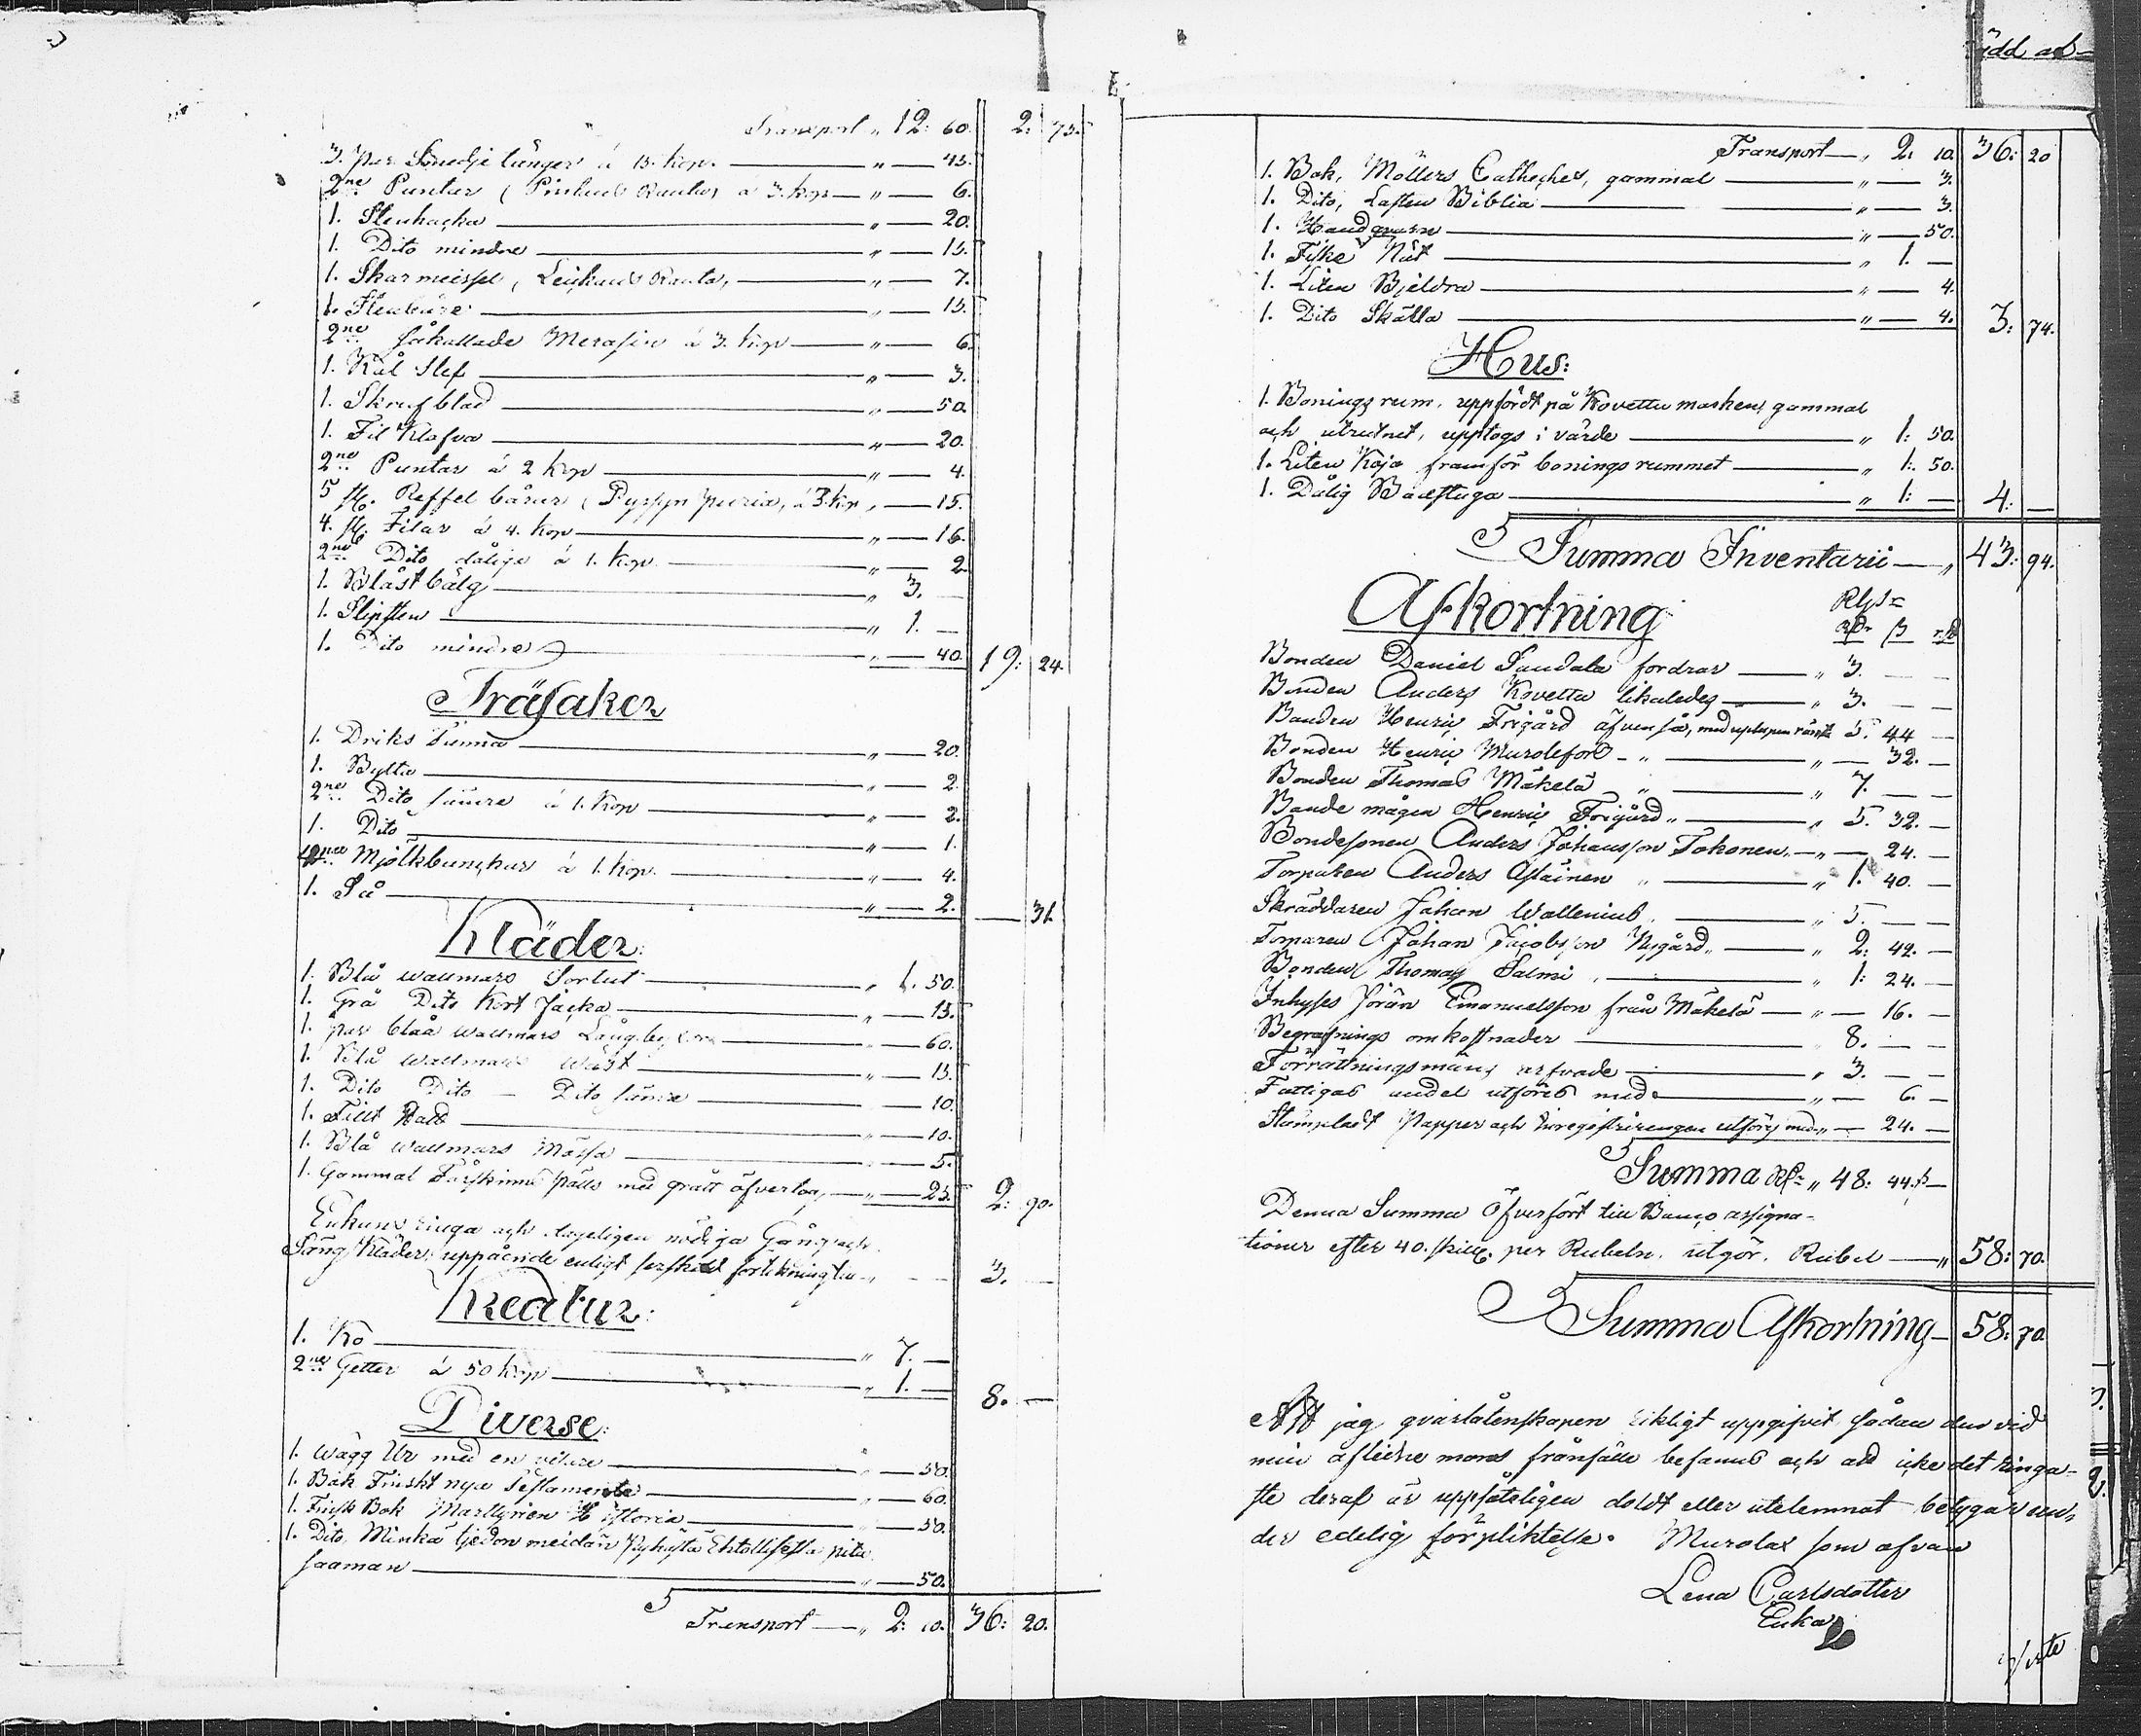 ädd ad=
Transport " 12: 60. 2: 75.
3. par Smedje tänger á 15. kop. " 45.
2ne Puntar ( á 3. kop " 6.
1. Stenhacka " 20.
1. Dito mindre " 15.
1. Skarmeissel, Rauta, " 7.
1. " 15.
2ne såkallade á 3. kop " 6.
1. Kål Slef " 3.
1. Skrufblad " 50.
1. Fil Klofva " 20.
2ne Puntar á 2 kop " 4.
5 st. Reffel bårar ( á 3. kop, 15.
4. st. Filar á 4. kop " 16.
2ne Dito dåliga á 1. kop. " 2
1. Blåstbälg " 3. —
1. Slipsten " 1. —
1. Dito mindre " 40. 19: 24.
Träsaker
1. Driks Tunna " 20.
1. Bytta " 2.
2ne Dito sämre á 1. kop " 2.
1. Dito " 1.
Mjölkbunckar á 1. kop. " 4.
1. Så " 2. — 31.
Kläder:
1. Blå wallmars Sortut " 1. 50.
1. Grå Dito Kort Jacka " 15.
1. par blåa wallmars Långbyxor " 60.
1. Blå wallmars Wäst " 15.
1. Dito Dito — Dito sämre 10.
1. Filt Hatt 10.
1. Blå wallmars Mössa " 5.
1. Gammal Fårskinns päls med grått öfvertog, " 25. 2: 90.
Enkans ringa och dageligen nödiga Gång och
Säng Kläder, uppående enligt serskild förtekning till " 3. —
Kreatur:
1. Ko " 7. —
2ne Getter á 50 kop " 1. — 8. —
Diverse:
1. Wägg Ur med en visare " 50.
1. Bok Finskt nya Testamente " 60.
1. Finsk Bok Marttyrien Historia " 50.
1. Dito, Minkä tjedon meidän Pyhästä Ehtollisesta pitä
saaman " 50.
Transport " 2: 10. 36: 20.
Transport " 2: 10. 36: 20
1. Bok, Möllers Catheches, gammal " 3.
1. Dito, Lasten Biblia " 3.
1. Handqvarn " 50.
1. Fiske Nät " 1. —
1. Liten Bjeldra " 4.
1. Dito Skälla " 4. 3: 74.
Hus:
1. Boningsrum, uppfördt på Kovettu marken, gammal
och utrutnet, upptogs i värde " 1: 50.
1. Liten Koja framför boningsrummet " 1: 50.
1. Dålig Badstuga " 1: — 4: —
Summa Inventarii " 43: 94.
Afkortning
Rgs
Rdr ß rst
Bonden Daniel Sandala fordrar " 3. — —
Bonden Anders Kovettu likaledes " 3. — —
Bonden Henric Frigård äfven så, med uplupen ränta 5. 44 —
Bonden Henric Murolefors " " — 32. —
Bonden Thomas Mäkelä " " 7. — —
Bonde mågen Henric Frigård " " 5. 32. —
Bondesonen Anders Johansson Tokonen " — 24. —
Torparen Anders Astäinen " " 1. 40. —
Skräddaren Johan Wallenius " 5. — —
Torparen Johan Jacobsson Nygård " " 2: 42. —
Bonden Thomas Salmi " " 1: 24. —
Inhyses Jöran Emanuelsson från Mäkelä " — 16. —
Begrafnings omkostnader 8. — —
Förrättningsmäns arfvode " 3. — —
Fattigas andel utföres med " — 6. —
Stämpladt Papper och inregistreringen utförs med " — 24. —
Summa Rdr " 48: 44. ß —
Denna Summa öfverfört till Banco assigna-
tioner efter 40. skill. per Rubeln, utgör, Rubel " 58: 70.
Summa Afkortning 58: 70
Att jag qvarlåtenskapen riktigt uppgifvit sådan den vid
min aflidne mans frånfälle befanns och att icke det ringa-
ste deraf är uppsåteligen doldt eller utelemnat betygar un-
der edelig förpliktelse. Murolax som ofvan
Lena Carlsdotter
Enka
Verte